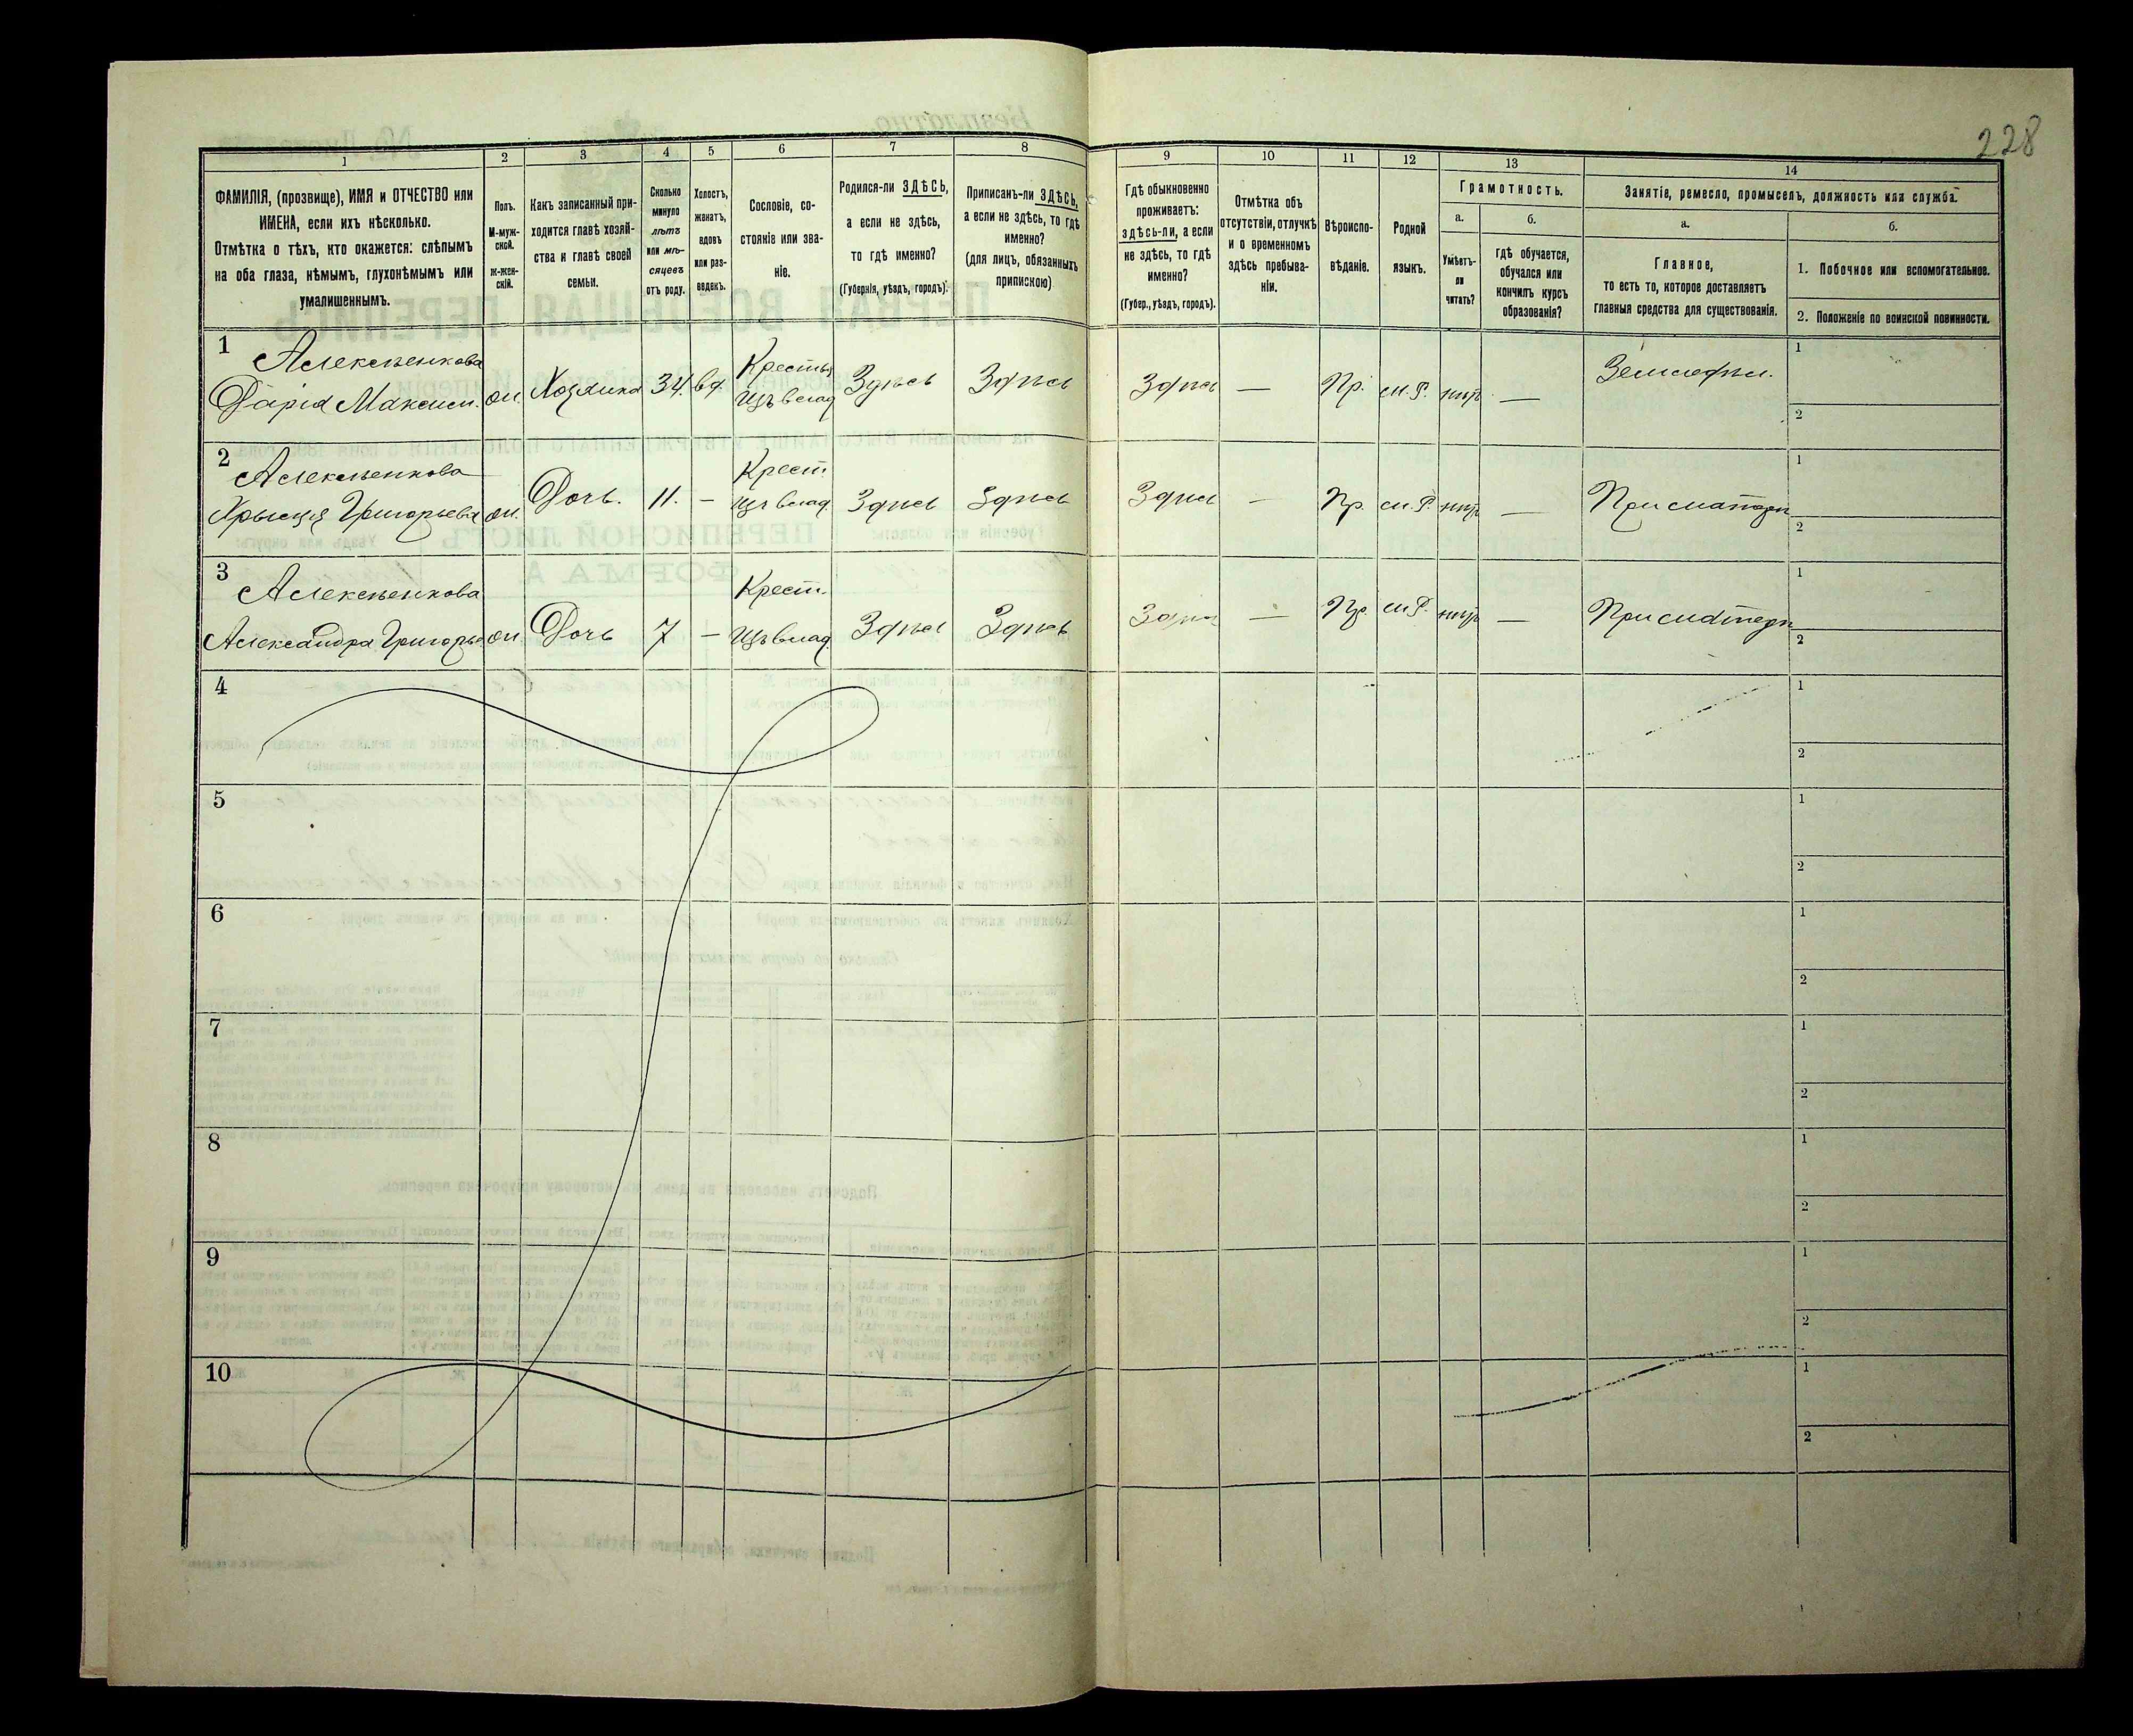 228
1 2 3 4 5 6 7 8 9 10 11 12 13 14
ФАМИЛІЯ, (прозвище), ИМЯ и ОТЧЕСТВО или
ИМЕНА, если ихъ нѣсколько.
Отмѣтка о тѣхъ, кто окажется: слѣпымъ
на оба глаза, нѣмымъ, глухонѣмымъ или
умалишеннымъ.
Полъ.
М-муж-
ской.
Ж-жен-
скій.
Какъ записанный при-
ходится главѣ хозяй-
ства и главѣ своей
семьи.
Сколько
минуло
лѣтъ
или мѣ-
сяцевъ
отъ роду.
Холостъ,
женатъ,
вдовъ
или раз-
веденъ.
Сословіе, со-
стояніе или зва-
ніе.
Родился-ли ЗДѢСЬ,
а если не здѣсь,
то гдѣ именно?
(Губернія, уѣздъ, городъ).
Приписанъ-ли ЗДѢСЬ,
а если не здѣсь, то гдѣ
именно?
(для лицъ, обязанныхъ
припискою)
Гдѣ обыкновенно
проживаетъ:
здѣсь-ли, а если
не здѣсь, то гдѣ
именно?
(Губер., уѣздъ, городъ).
Отмѣтка объ
отсутствіи, отлучкѣ
и о временномъ
здѣсь пребыва-
ніи.
Вѣроиспо-
вѣданіе.
Родной
языкъ.
Грамотность.
а.
Умѣетъ-
ли
читать?
б.
Гдѣ обучается,
обучался или
кончилъ курсъ
образованія?
Занятіе, ремесло, промыселъ, должность или служба.
а.
Главное,
то есть то, которое доставляетъ
главныя средства для существованія.
б.
1. Побочное или вспомогательное.
2. Положеніе по воинской повинности.
1 Алексѣенкова Кресть 1
Дарія Максим. ж. Хозяика 34. вд. изъ влад Здѣсь Здѣсь Здѣсь — Пр. м.Р. нѣтъ — Земледѣл. 2
2 Алексѣенкова Крест 1
Григорьева ж. Дочь. 11. - изъ влад. Здѣсь Здѣсь Здѣсь — Пр. м.Р. нѣтъ — При матери 2
3 Алексѣенкова Крест. 1
Александра Григорье ж. Дочь 7 - изъ влад. Здѣсь Здѣсь Здѣсь — Пр. м.Р. нѣтъ — При матери 2
4 1
2
5 1
2
6 1
2
7 1
2
8 1
2
9 1
2
10 1
2